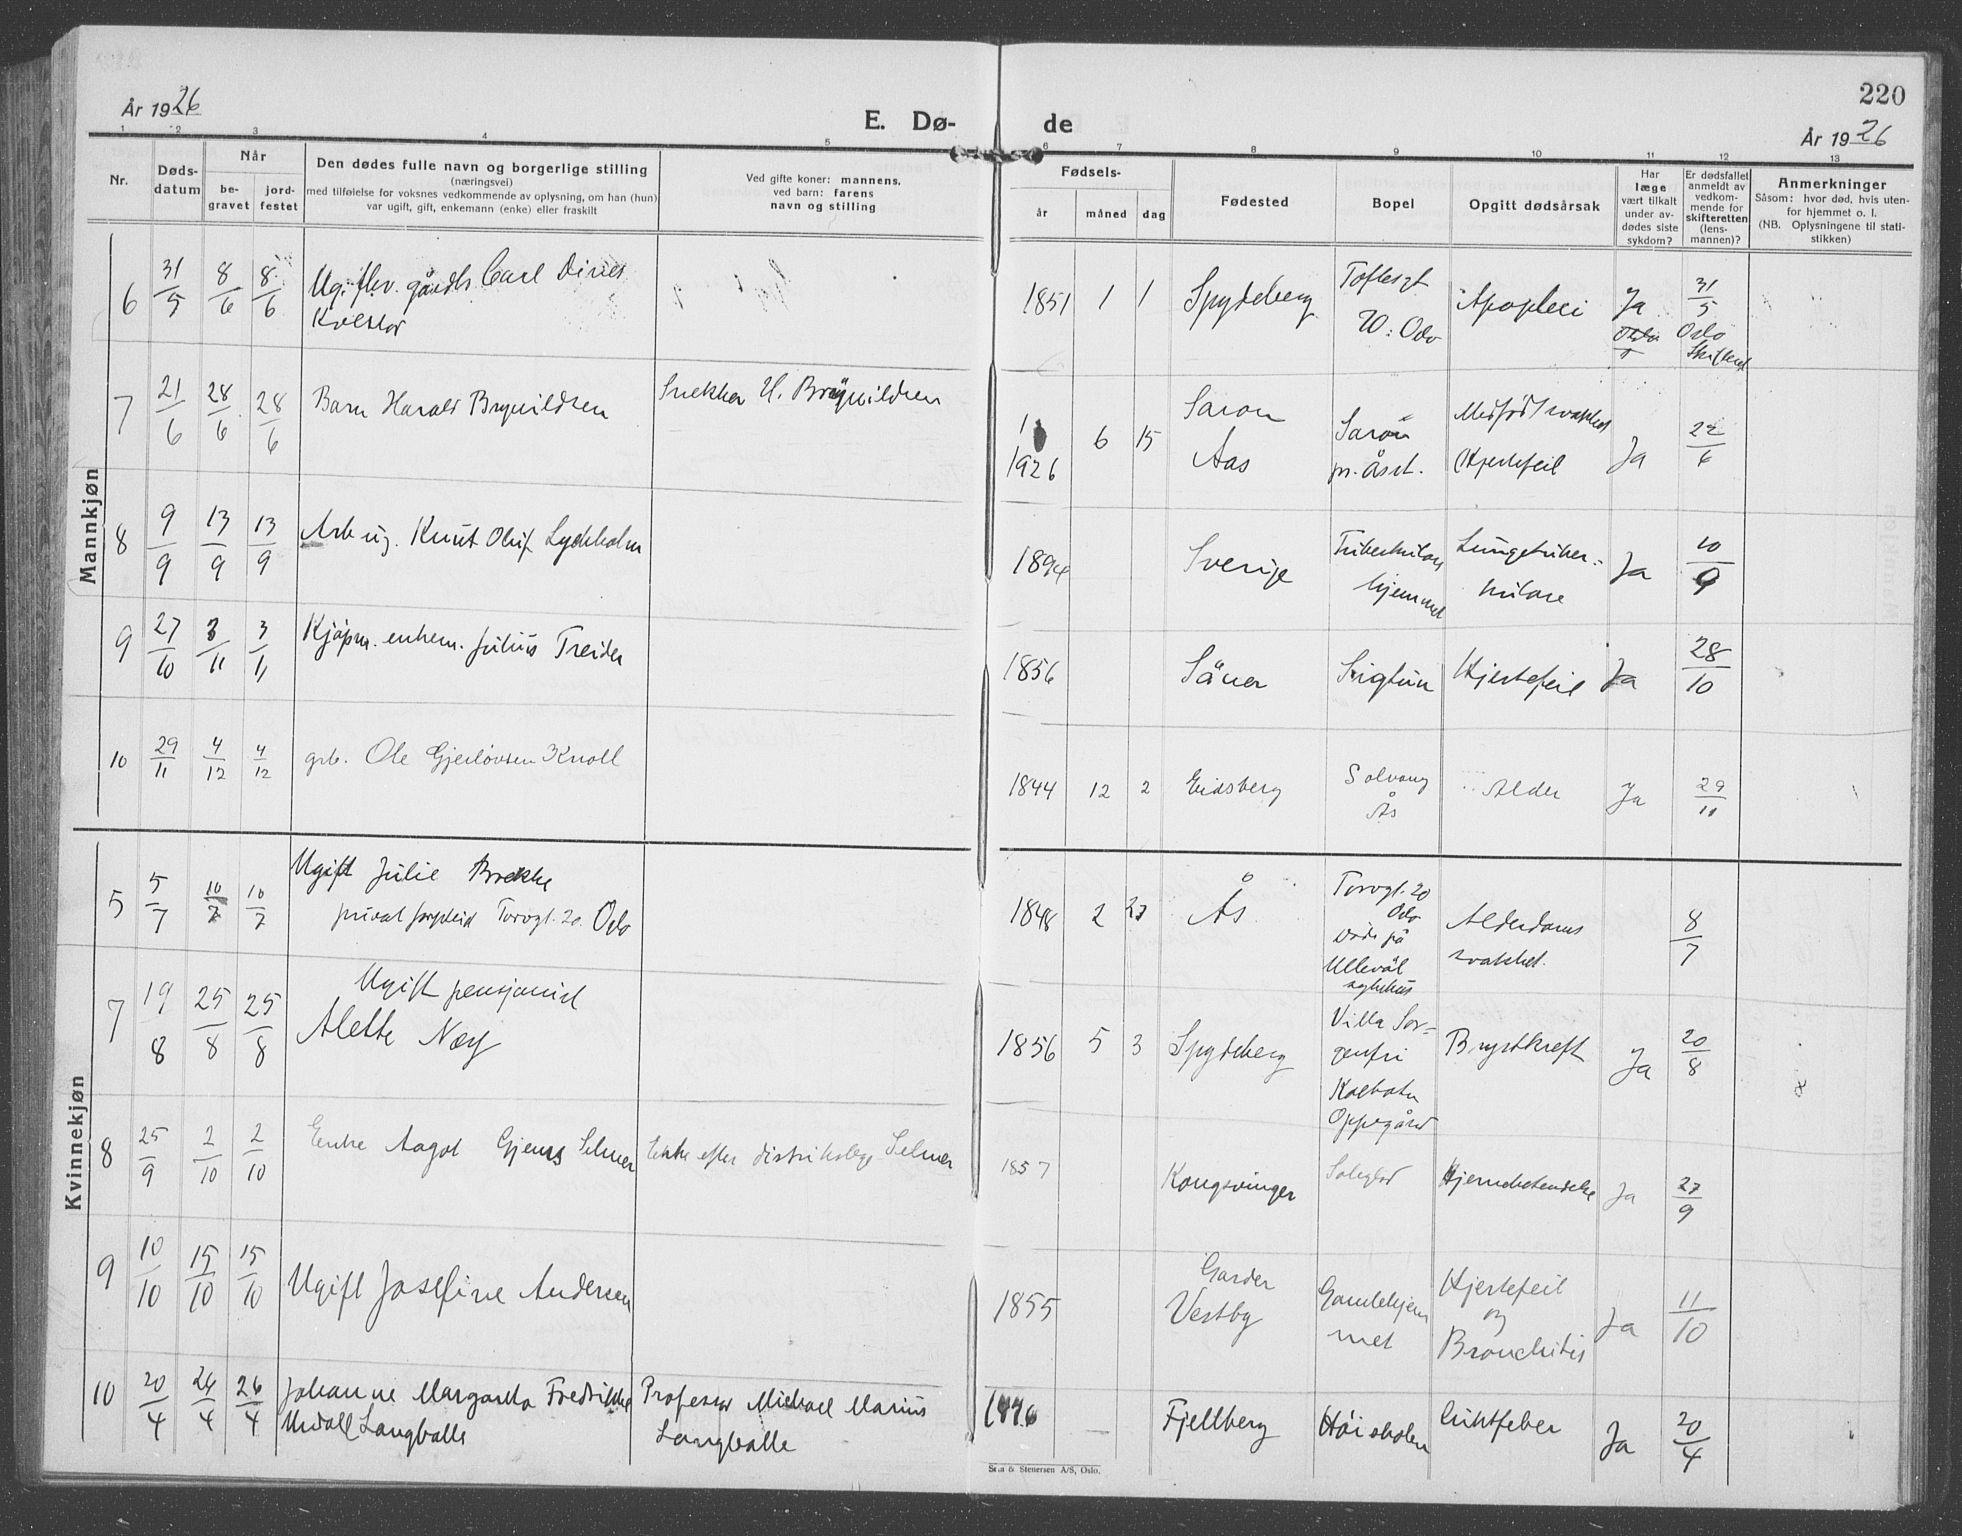 År 1926
E. Dø-
de
220
År 1926
1 2 3 4 5 6 7 8 9 10 11 12 13
Nr.
Døds-
datum
Når
be-
gravet
jord-
festet
Den dødes fulle navn og borgerlige stilling
(næringsvei)
med tilføielse for voksnes vedkommende av oplysning, om han (hun)
var ugift, gift, enkemann (enke) eller fraskilt
Ved gifte koner: mannens,
ved barn: farens
navn og stilling
Fødsels-
år måned dag
Fødested
Bopel
Opgitt dødsårsak
Har
læge
vært tilkalt
under av-
dødes siste
sykdom?
Er dødsfallet
anmeldt av
vedkom-
mende for
skifteretten
(lens-
mannen)?
Anmerkninger
Såsom: hvor død, hvis uten-
for hjemmet o. l.
(NB. Oplysningene til stati-
stikken)
Mannkjøn
6 31/5 8/6 8/6 Carl Dines
1851 1 1 Spydeberg Toftesgt Apopleci Ja 31/5
Oslo Oslo
7 21/6 28/6 28/6 Barn Harald Brynildsen Snekker H. Brynildsen
1926 6 15 Saron Aas Saron pr. Åsst. Medfødt svakhet Hjertefeil Ja 22/6
8 9/9 13/9 13/9 Arb ug. Knut Oluf Lyckholm
1894 Sverige Tuberkulose
hjemmet Lungetuber-
kulose Ja 10/9
9 27/10 3/11 3/11 Kjøpm. enkem. Julius Treider
1856 Såner Sigtun Hjertefeil Ja 28/10
10 29/11 4/12 4/12 grb. Ole Gjerløvsen Knoll
1844 12 2 Eidsberg Solvang
Ås Alder Ja 29/11
Kvinnekjøn
5 5/7 10/7 10/7 Ugift Julie Brekke
privat forpleid Torvgt. 20. Oslo
1848 2 27 Ås Torvgt. 20
Oslo
Døde på
Ullevål
sykehus Alderdoms
svakhet. 8/7
7 19/8 25/8 25/8 Ugift pensjonist
Alette Næs
1856 5 3 Spydeberg Villa Sor-
genfri
Kolbotn
Oppegård Brystkreft Ja 20/8
8 25/9 2/10 2/10 Enke Aagot Gjems Selmer Enke efter distriktslege Selmer
1857 Kongsvinger Solglød Hjernebetendelse Ja 27/9
9 10/10 15/10 15/10 Ugift Josefine Andersen
1855 Garder
Vestby Gamlehjem
met Hjertefeil
og
Bronchitis Ja 11/10
10 20/4 24/4 26/4 Johanne Margareta Fredrikke
Langballe Professor Michael Marius
Langballe
Fjellberg Høiskolen Giktfeber Ja 20/4
& Stenersen A/S, Oslo.